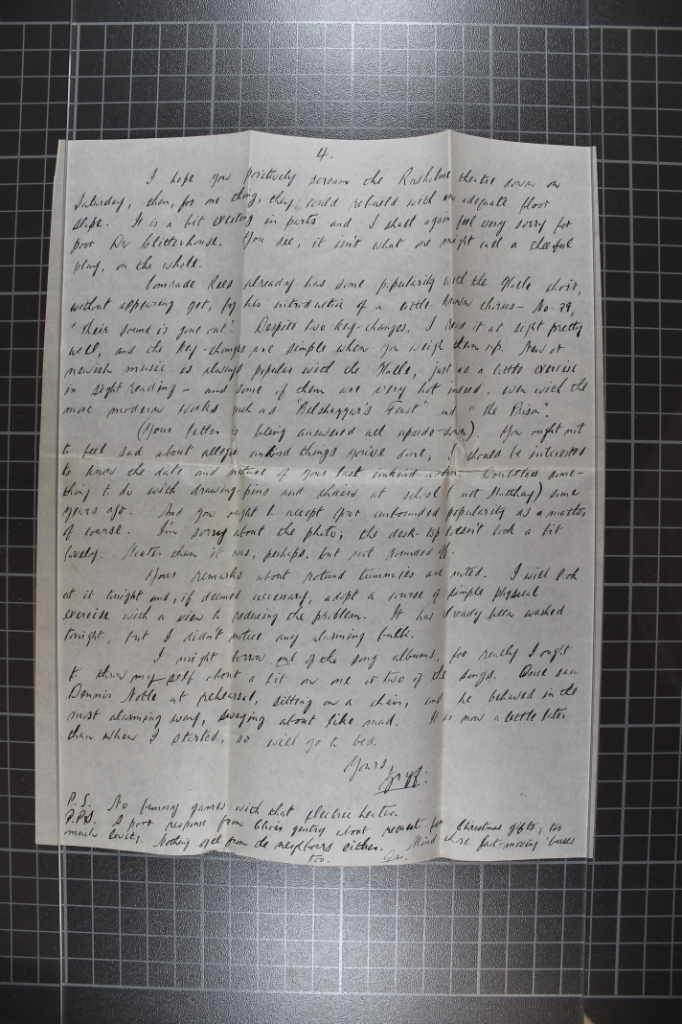 4.
I hope you positively scream the Rusholme theatre down on
Saturday, then, for one thing, they could rebuild with an adequate floor
slope. It is a bit exciting in parts and I shall again feel very sorry for
poor Dr Clitterhouse. You see, it isn't what one might call a cheerful
play, on the whole.
Comrade Rees already has some popularity with the Halle choir,
without appearing yet, for his introduction of a little-known chorus - No. 39,
"Their sound is gone out". Despite two key-changes, I read it at sight pretty
well, and the key-changes are simple when you weigh them up. New or
newish music is always popular with the Halle, just as a little exercise
in sight reading - and some of them are very hot indeed, even with the
more modern works such as "Belshazzar's Feast" and "The Prison".
(Your letter is being answered all upside-down). You ought not
to feel sad about alleged unkind things you've done, I should be interested
to know the date and nature of your last unkind action. Doubtless some-
thing to do with drawing-pins and chairs at school (not) some
years ago. And you ought to accept your unbounded popularity as a matter
of course. I'm sorry about the photo; the desk-top doesn't look a bit
lovely. Neater than it was, perhaps, but not rounded off.
Your remarks about rotund tummies are noted. I will look
at it tonight and, if deemed necessary, adopt a course of simple physical
exercise with a view to reducing the problem. It has already been washed
tonight, but I didn't notice any alarming bulk.
I might borrow one of the song albums, for really I ought
to throw myself about a bit on one or two of the songs. Once saw
Dennis Noble at rehearsal, sitting on a chair, and he behaved in the
most alarming way, swaying about like mad. It is now a little later
than when I started, so will go to bed.
Yours
P.S. No funny games with that electric heater.
P.P.S. A poor response from choir gentry about request for Christmas gifts; too
much levity. Nothing yet from the neighbours either. Mind those fast-moving buses
too.